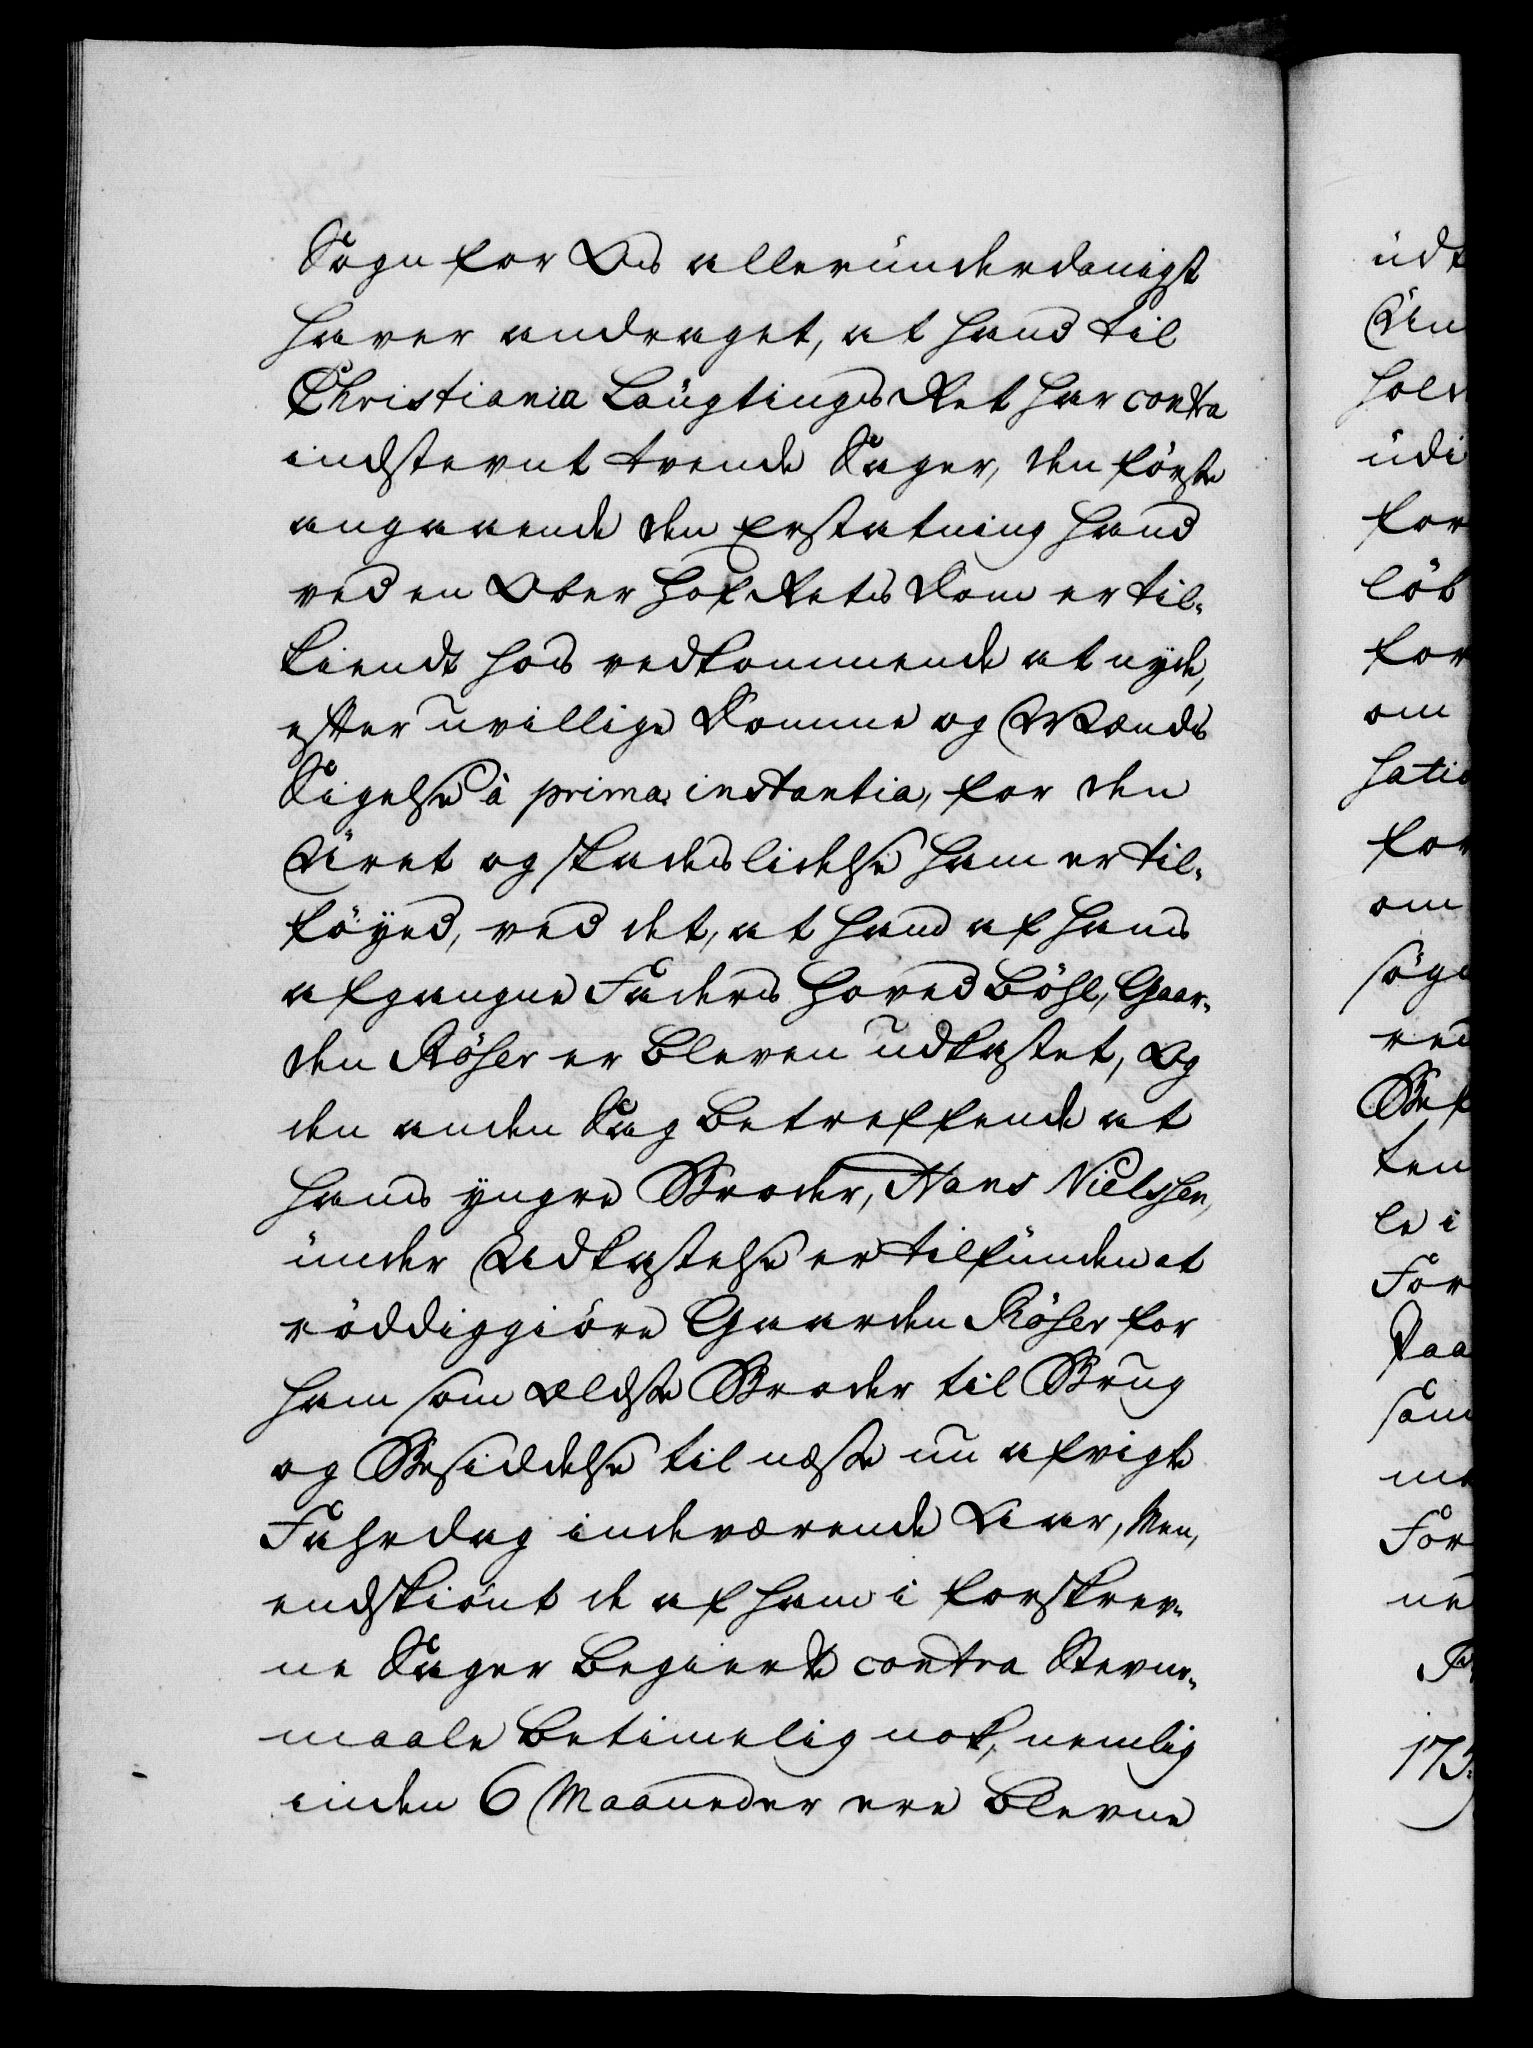 Sogn for Os allerunderdanigst
haver andraget, at hand til
Christiania Laugtings Ret har contra
indstevnt tvende Sager, den første
angaaende den Erstatning hand
ved en Ober Hof Rets Dom er til-
kiendt hos vedkommende at nyde,
efter uvillige Domme og Mænds
Sigelse à prima instantia, for den
Uret og skadeslidelse ham er til-
föyed, ved det, at hand af hans
afgangne Faders Hoved Böhl, Gaar-
den Röser er bleven udkastet, Og
den anden Sag betreffende at
hans yngre Broder, Hans Nielssen,
under Udkastelse er tilfunden at
röddiggiöre Gaarden Röser for
ham som Ældste Broder til Brug
og Besiddelse til næste nu afvigte
Fahredag indeværende Aar, Men,
endskiönt de af ham i forskrev-
ne Sager begierte contra Stevne-
maale betimelig nok, nemlig
inden 6 Maaneder ere blevne
udt
Un
hol
udi
for
löb
for
om
hatio
for
om
söge
ved
Bef
ten
le i
For
Paa
som
me
For
ne
173